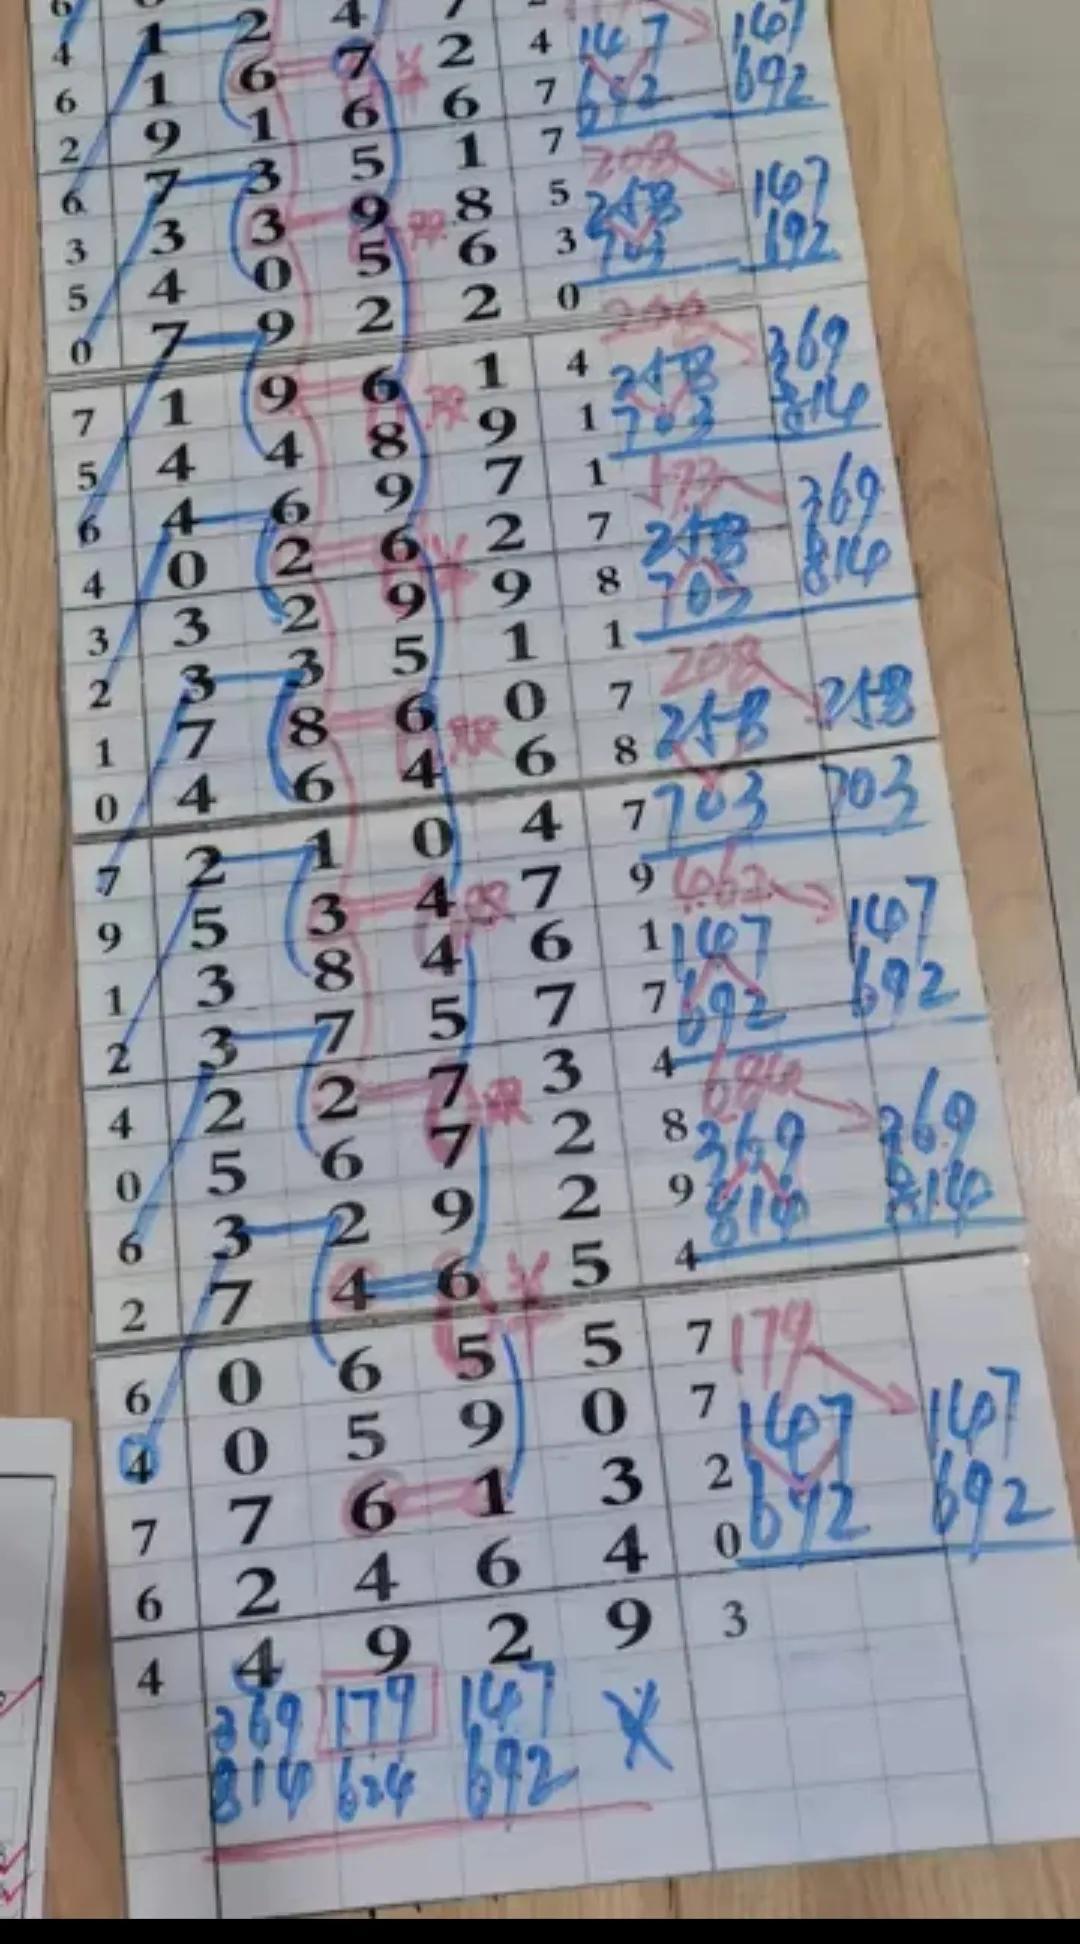 4 1 2 4 7
6 1 6 7 2 4 147 147
2 9 1 6 6 7 692 692
6 7 3 5 1 7 208
3 3 3 9 8 5 258 147
5 4 0 5 6 3 703 692
0 7 9 2 2 0
7 1 9 6 1 4 258 369
5 4 4 8 9 1 703 814
6 4 6 9 7 1 369
4 0 2 6 2 7 258 814
3 3 2 9 9 8 703
2 3 3 5 1 1 208
1 7 8 6 0 7 258 258
0 4 6 4 6 8 703 703
7 2 1 0 4 7
9 5 3 4 7 9 147
1 3 8 4 6 1 147 692
2 3 7 5 7 7 692
4 2 2 7 3 4 684
0 5 6 7 2 8 369 369
6 3 2 9 2 9 814 814
2 7 4 6 5 4
6 0 6 5 5 7 179
4 0 5 9 0 7 147 147
7 7 6 1 3 2 692 692
6 2 4 6 4 0
4 4 9 2 9 3
369 179 147
814 624 692